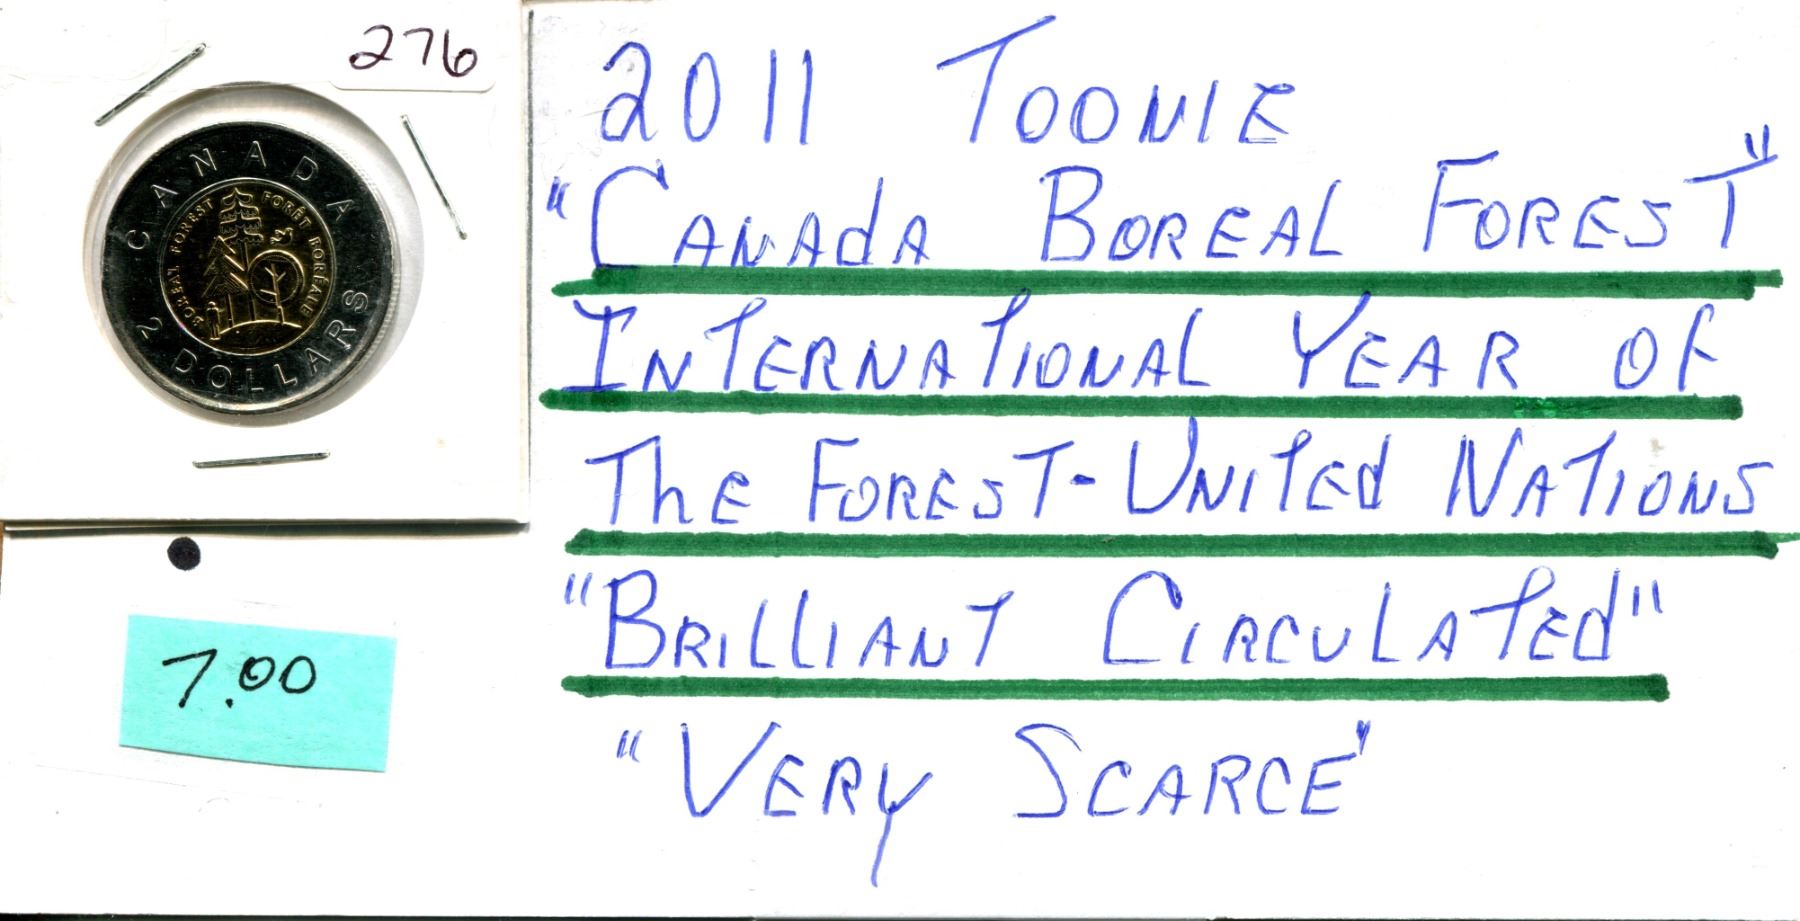 276
CANADA
BOREAL FOREST
FORÊT BORÉALE
2 DOLLARS
7.00
2011 TOONIE
"CANAdA BOREAL FOREST"
INTERNATIONAL YEAR OF
ThE FOREST-UNITEd NATIONS
"BRILLIANT CIRCULATEd"
"VERY SCARCE"